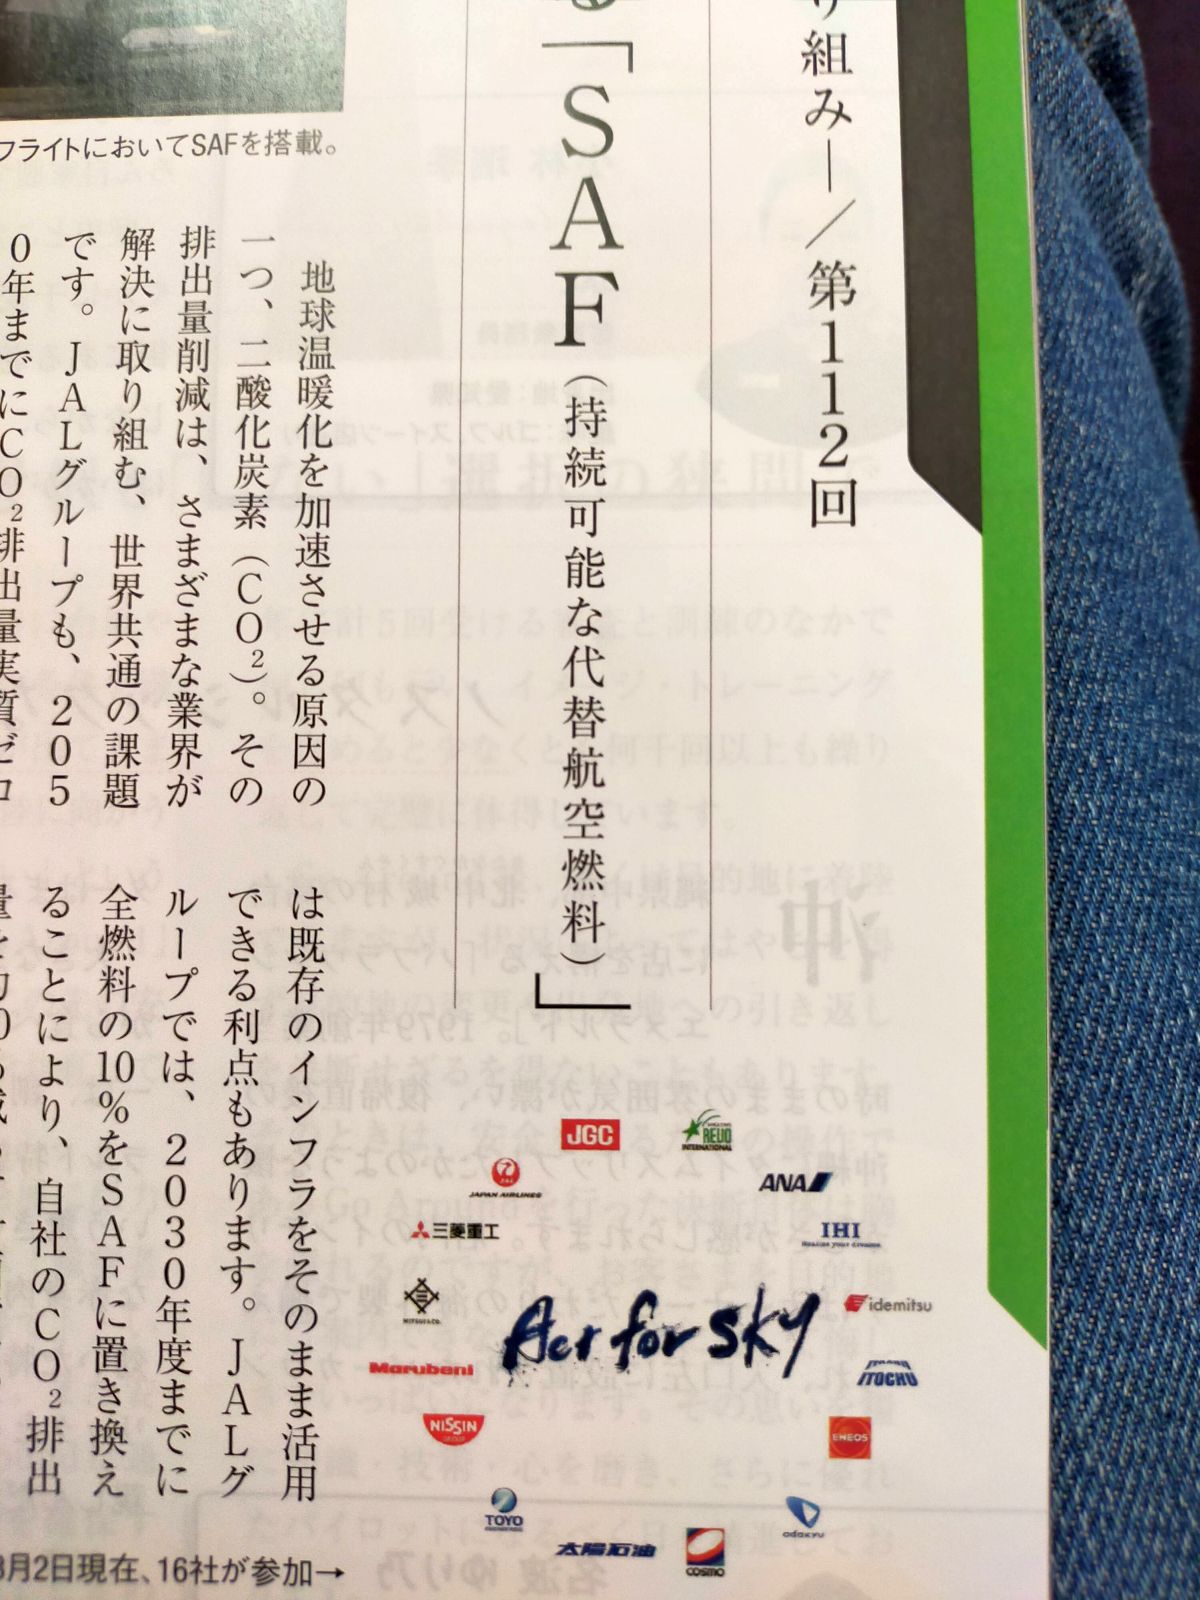 り組み―／第112回
る「SAF（持続可能な代替航空燃料）」
フライトにおいてSAFを搭載。
地球温暖化を加速させる原因の
一つ、二酸化炭素（CO₂）。その
排出量削減は、さまざまな業界が
解決に取り組む、世界共通の課題
です。JALグループも、205
0年までにCO₂排出量実質ゼロ
は既存のインフラをそのまま活用
できる利点もあります。JALグ
ループでは、2030年度までに
全燃料の10％をSAFに置き換え
ることにより、自社のCO₂排出
JGC
REVO INTERNATIONAL
JAPAN AIRLINES
ANA
三菱重工
IHI
Realize your dreams
MITSUI&CO.
Act for SKY
idemitsu
Marubeni
ITOCHU
NISSIN
ENEOS
TOYO
odakyu
太陽石油
COSMO
月2日現在、16社が参加→